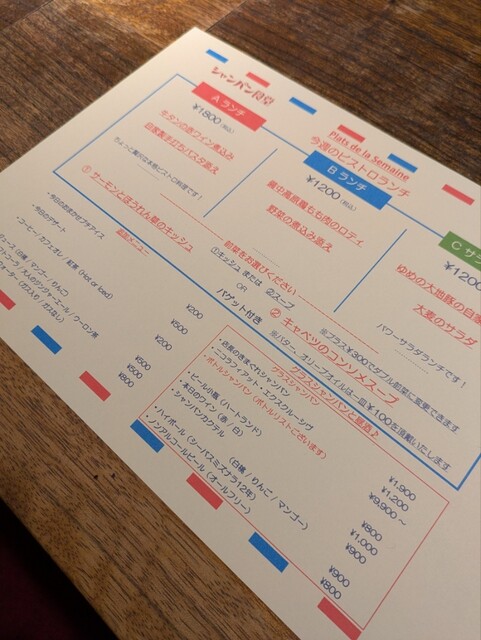 シャンパン食堂
Plats de la Semaine
今週のビストロランチ
A ランチ
¥1800(税込)
牛タンの赤ワイン煮込み
自家製手打ちパスタ添え
ちょっと贅沢は本格ビストロ料理です！
B ランチ
¥1200(税込)
蔵王高原鶏もも肉のロティ
野菜の煮込み添え
C サラ
¥1200
ゆめの大地豚の自家
大麦のサラダ
パワーサラダランチです！
前菜をお選びください
①キッシュ または ②スープ
①サーモンとほうれん草のキッシュ
OR
②キャベツのコンソメスープ
※プラス¥300でダブル前菜に変更できます
バゲット付き
※バター、オリーブオイルは一皿¥100を頂戴いたします
追加メニュー
・今日のおまかせプチアイス
¥200
・今日のデザート
¥500
・コーヒー / カフェオレ / 紅茶 (Hot or Iced)
¥200
ジュース (白桃 / マンゴー / りんご
¥500
/ 大人のジンジャーエール / ウーロン茶
¥500
ウォーター (ガス入り / ガスなし)
¥800
グラスシャンパンと昼酒♪
グラスシャンパン
・店長のきまぐれシャンパン
¥1,900
・ニコラフィアット・エクスクルーシヴ
¥1,200
・ボトルシャンパン (ボトルリストございます)
¥9,900～
・ビール小瓶 (ハートランド)
¥800
・本日のワイン (赤 / 白)
¥1,000
・シャンパンカクテル
(白桃 / りんご / マンゴー)
¥900
・ハイボール (シーバスミズナラ12年)
¥900
・ノンアルコールビール (オールフリー)
¥800